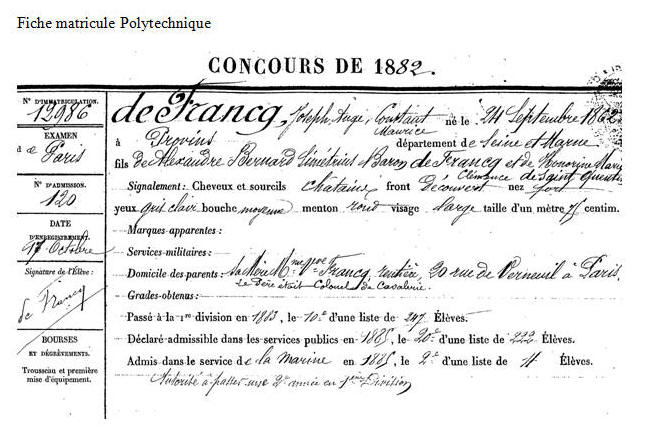 Fiche matricule Polytechnique
CONCOURS DE 1882.
N° D'IMMATRICULATION.
12986
EXAMEN
d de Paris
N° D'ADMISSION.
120
DATE
D'ENREGISTREMENT.
17 Octobre
Signature de l'Élève :
de Francq
BOURSES
ET DÉGRÈVEMENTS.
Trousseau et première
mise d'équipement.
de Francq, Joseph Constant né le 24 Septembre 1862
Maurice
à Provins département de Seine et Marne
fils de Alexandre Bernard Baron de Francq et de Honorine Marie
Clémence de Saint Quentin
Signalement : Cheveux et sourcils chatains front découvert nez fort
yeux gris clair bouche moyenne menton rond visage large taille d'un mètre 75 centim.
Marques apparentes :
Services militaires :
Domicile des parents : Sa Mère Mme Francq, rentière, 30 rue de Verneuil à Paris.
Le Père était Colonel de Cavalerie.
Grades obtenus :
Passé à la 1re division en 1883, le 10e d'une liste de 247 Élèves.
Déclaré admissible dans les services publics en 1885, le 20e d'une liste de 222 Élèves.
Admis dans le service de la Marine en 1885, le 2e d'une liste de 4 Élèves.
Autorisé à passer une 2e année en 1ère Division